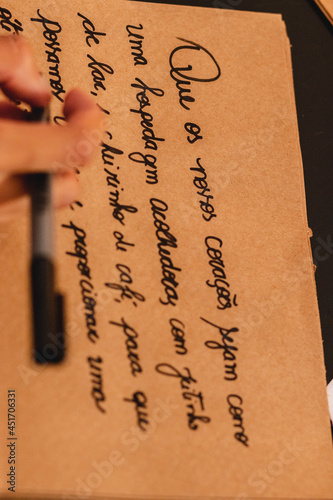 Que os nossos corações sejam como
uma hospedagem acolhedora, com jeitinho
de lar, cheirinho de café, para que
possamos proporcionar uma
Adobe Stock | #451706331